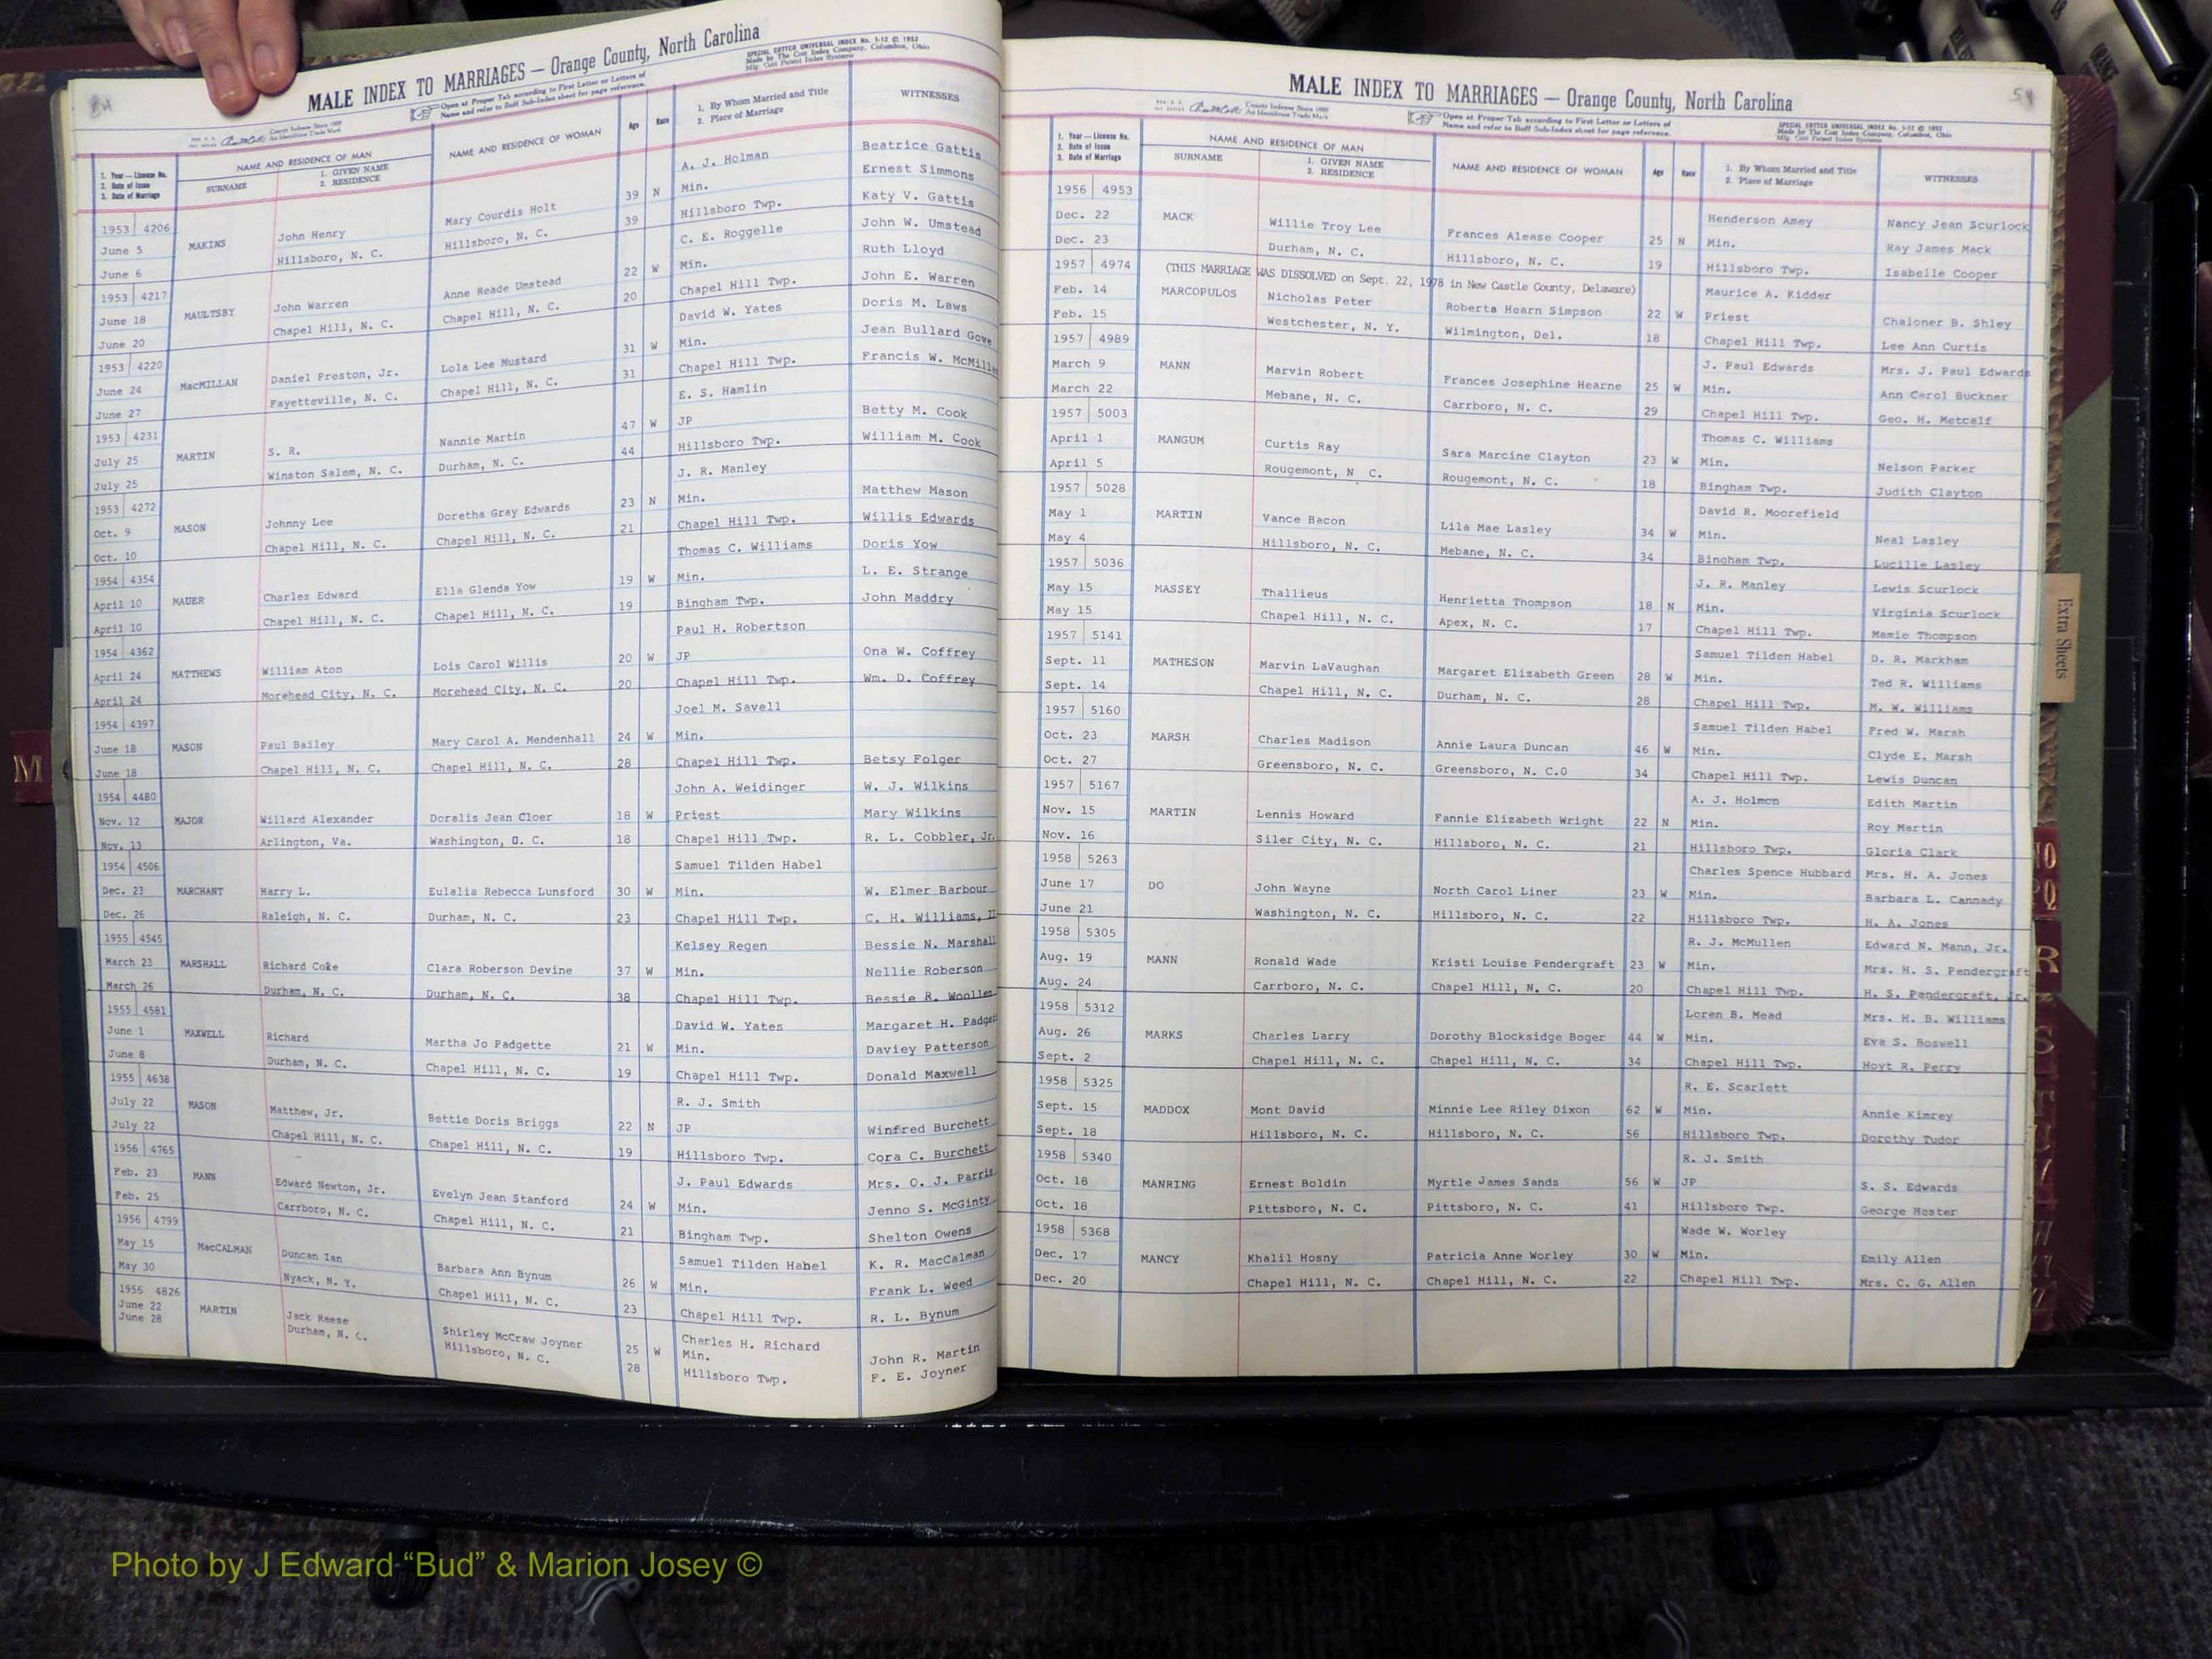 MALE INDEX TO MARRIAGES — Orange County, North Carolina
SPECIAL COTTED UNIVERSAL INDEX No. 1-12 © 1952
Made by The Cott Index Company, Columbus, Ohio
Open at Proper Tab according to First Letter or Letters of
Name and refer to Buff Sub-Index sheet for page reference.
County Indexes Since 1888
An Identifying Trade Mark
1. Year — License No.
2. Date of Issue
3. Date of Marriage
NAME AND RESIDENCE OF MAN
SURNAME
1. GIVEN NAME
2. RESIDENCE
NAME AND RESIDENCE OF WOMAN
Age
Race
1. By Whom Married and Title
2. Place of Marriage
WITNESSES
1953 4206 A. J. Holman Beatrice Gattis
June 5 MAKINS John Henry Mary Courdis Holt 39 N Min. Ernest Simmons
June 6 Hillsboro, N. C. Hillsboro, N. C. 39 Hillsboro Twp. Katy V. Gattis
1953 4217 C. E. Roggelle John W. Umstead
June 18 MAULTSBY John Warren Anne Reade Umstead 22 W Min. Ruth Lloyd
June 20 Chapel Hill, N. C. Chapel Hill, N. C. 20 Chapel Hill Twp. John E. Warren
1953 4220 David W. Yates Doris M. Laws
June 24 MacMILLAN Daniel Preston, Jr. Lola Lee Mustard 31 W Min. Jean Bullard Gove
June 27 Fayetteville, N. C. Chapel Hill, N. C. 31 Chapel Hill Twp. Francis W. McMill
1953 4231 E. S. Hamlin
July 25 MARTIN S. R. Nannie Martin 47 W JP Betty M. Cook
July 25 Winston Salem, N. C. Durham, N. C. 44 Hillsboro Twp. William M. Cook
1953 4272 J. R. Manley
Oct. 9 MASON Johnny Lee Doretha Gray Edwards 23 N Min. Matthew Mason
Oct. 10 Chapel Hill, N. C. Chapel Hill, N. C. 21 Chapel Hill Twp. Willis Edwards
1954 4354 Thomas C. Williams Doris Yow
April 10 MAUER Charles Edward Ella Glenda Yow 19 W Min. L. E. Strange
April 10 Chapel Hill, N. C. Chapel Hill, N. C. 19 Bingham Twp. John Maddry
1954 4362 Paul H. Robertson
April 24 MATTHEWS William Aton Lois Carol Willis 20 W JP Ona W. Coffrey
April 24 Morehead City, N. C. Morehead City, N. C. 20 Chapel Hill Twp. Wm. D. Coffrey
1954 4397 Joel M. Savell
June 18 MASON Paul Bailey Mary Carol A. Mendenhall 24 W Min.
June 18 Chapel Hill, N. C. Chapel Hill, N. C. 28 Chapel Hill Twp. Betsy Folger
1954 4480 John A. Weidinger W. J. Wilkins
Nov. 12 MAJOR Willard Alexander Doralis Jean Cloer 18 W Priest Mary Wilkins
Nov. 13 Arlington, Va. Washington, D. C. 18 Chapel Hill Twp. R. L. Cobbler, Jr.
1954 4506 Samuel Tilden Habel
Dec. 23 MARCHANT Harry L. Eulalia Rebecca Lunsford 30 W Min. W. Elmer Barbour
Dec. 26 Raleigh, N. C. Durham, N. C. 23 Chapel Hill Twp. C. H. Williams, II
1955 4545 Kelsey Regen Bessie N. Marshall
March 23 MARSHALL Richard Coke Clara Roberson Devine 37 W Min. Nellie Roberson
March 26 Durham, N. C. Durham, N. C. 38 Chapel Hill Twp. Bessie R. Woollen
1955 4581 David W. Yates Margaret H. Padget
June 1 MAXWELL Richard Martha Jo Padgette 21 W Min. Daviey Patterson
June 8 Durham, N. C. Chapel Hill, N. C. 19 Chapel Hill Twp. Donald Maxwell
1955 4638 R. J. Smith
July 22 MASON Matthew, Jr. Bettie Doris Briggs 22 N JP Winfred Burchett
July 22 Chapel Hill, N. C. Chapel Hill, N. C. 19 Hillsboro Twp. Cora C. Burchett
1956 4765 J. Paul Edwards Mrs. O. J. Parris
Feb. 23 MANN Edward Newton, Jr. Evelyn Jean Stanford 24 W Min. Jenno S. McGinty
Feb. 25 Carrboro, N. C. Chapel Hill, N. C. 21 Bingham Twp. Shelton Owens
1956 4799 Samuel Tilden Habel K. R. MacCalman
May 15 MacCALMAN Duncan Ian Barbara Ann Bynum 26 W Min. Frank L. Weed
May 30 Nyack, N. Y. Chapel Hill, N. C. 23 Chapel Hill Twp. R. L. Bynum
1956 4826 Charles H. Richard
June 22 MARTIN Jack Reese Shirley McCraw Joyner 25 W Min. John R. Martin
June 28 Durham, N. C. Hillsboro, N. C. 28 Hillsboro Twp. F. E. Joyner
MALE INDEX TO MARRIAGES — Orange County, North Carolina
County Indexes Since 1888
An Identifying Trade Mark
Open at Proper Tab according to First Letter or Letters of
Name and refer to Buff Sub-Index sheet for page reference.
SPECIAL COTTED UNIVERSAL INDEX No. 1-12 © 1952
Made by The Cott Index Company, Columbus, Ohio
1. Year — License No.
2. Date of Issue
3. Date of Marriage
NAME AND RESIDENCE OF MAN
SURNAME
1. GIVEN NAME
2. RESIDENCE
NAME AND RESIDENCE OF WOMAN
Age
Race
1. By Whom Married and Title
2. Place of Marriage
WITNESSES
1956 4953 Henderson Amey Nancy Jean Scurlock
Dec. 22 MACK Willie Troy Lee Frances Alease Cooper 25 N Min. Ray James Mack
Dec. 23 Durham, N. C. Hillsboro, N. C. 19 Hillsboro Twp. Isabelle Cooper
1957 4974 (THIS MARRIAGE WAS DISSOLVED on Sept. 22, 1978 in New Castle County, Delaware) Maurice A. Kidder
Feb. 14 MARCOPULOS Nicholas Peter Roberta Hearn Simpson 22 W Priest Chaloner B. Shley
Feb. 15 Westchester, N. Y. Wilmington, Del. 18 Chapel Hill Twp. Lee Ann Curtis
1957 4989 J. Paul Edwards Mrs. J. Paul Edwards
March 9 MANN Marvin Robert Frances Josephine Hearne 25 W Min. Ann Carol Buckner
March 22 Mebane, N. C. Carrboro, N. C. 29 Chapel Hill Twp. Geo. H. Metcalf
1957 5003 Thomas C. Williams
April 1 MANGUM Curtis Ray Sara Marcine Clayton 23 W Min. Nelson Parker
April 5 Rougemont, N C. Rougemont, N. C. 18 Bingham Twp. Judith Clayton
1957 5028 David R. Moorefield
May 1 MARTIN Vance Bacon Lila Mae Lasley 34 W Min. Neal Lasley
May 4 Hillsboro, N. C. Mebane, N. C. 34 Bingham Twp. Lucille Lasley
1957 5036 J. R. Manley Lewis Scurlock
May 15 MASSEY Thallieus Henrietta Thompson 18 N Min. Virginia Scurlock
May 15 Chapel Hill, N. C. Apex, N. C. 17 Chapel Hill Twp. Mamie Thompson
1957 5141 Samuel Tilden Habel D. R. Markham
Sept. 11 MATHESON Marvin LaVaughan Margaret Elizabeth Green 28 W Min. Ted R. Williams
Sept. 14 Chapel Hill, N. C. Durham, N. C. 28 Chapel Hill Twp. M. W. Williams
1957 5160 Samuel Tilden Habel Fred W. Marsh
Oct. 23 MARSH Charles Madison Annie Laura Duncan 46 W Min. Clyde E. Marsh
Oct. 27 Greensboro, N. C. Greensboro, N. C.O 34 Chapel Hill Twp. Lewis Duncan
1957 5167 A. J. Holmon Edith Martin
Nov. 15 MARTIN Lennis Howard Fannie Elizabeth Wright 22 N Min. Roy Martin
Nov. 16 Siler City, N. C. Hillsboro, N. C. 21 Hillsboro Twp. Gloria Clark
1958 5263 Charles Spence Hubbard Mrs. H. A. Jones
June 17 DO John Wayne North Carol Liner 23 W Min. Barbara L. Cannady
June 21 Washington, N. C. Hillsboro, N. C. 22 Hillsboro Twp. H. A. Jones
1958 5305 R. J. McMullen Edward N. Mann, Jr.
Aug. 19 MANN Ronald Wade Kristi Louise Pendergraft 23 W Min. Mrs. H. S. Pendergraft
Aug. 24 Carrboro, N. C. Chapel Hill, N. C. 20 Chapel Hill Twp. H. S. Pendergraft, Jr.
1958 5312 Loren B. Mead Mrs. H. B. Williams
Aug. 26 MARKS Charles Larry Dorothy Blocksidge Boger 44 W Min. Eva S. Boswell
Sept. 2 Chapel Hill, N. C. Chapel Hill, N. C. 34 Chapel Hill Twp. Hoyt R. Perry
1958 5325 R. E. Scarlett
Sept. 15 MADDOX Mont David Minnie Lee Riley Dixon 62 W Min. Annie Kimrey
Sept. 18 Hillsboro, N. C. Hillsboro, N. C. 56 Hillsboro Twp. Dorothy Tudor
1958 5340 R. J. Smith
Oct. 18 MANRING Ernest Boldin Myrtle James Sands 56 W JP S. S. Edwards
Oct. 18 Pittsboro, N. C. Pittsboro, N. C. 41 Hillsboro Twp. George Hester
1958 5368 Wade W. Worley
Dec. 17 MANCY Khalil Hosny Patricia Anne Worley 30 W Min. Emily Allen
Dec. 20 Chapel Hill, N. C. Chapel Hill, N. C. 22 Chapel Hill Twp. Mrs. C. G. Allen
Extra Sheets
M
R
Photo by J Edward “Bud” & Marion Josey ©